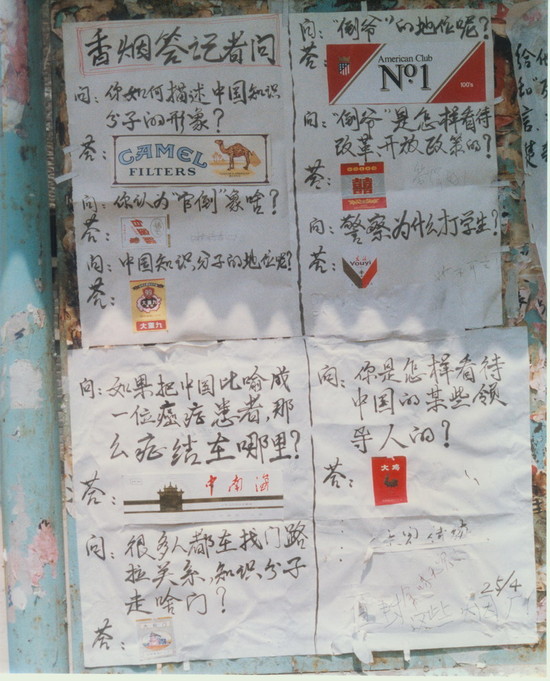 香烟答记者问
问：你如何描述中国知识
分子的形象？
答：
CAMEL
FILTERS
问：你认为"官倒"象啥？
答：
问：中国知识分子的地位呢？
答：
大重九
问：如果把中国比喻成
一位癌症患者，那
么症结在哪里？
答：
中南海
问：很多人都在找门路
拉关系，知识分子
走啥门？
答：
问："倒爷"的地位呢？
答：
American Club
No1
100's
问："倒爷"是怎样看待
改革开放政策的？
答：
囍
问：警察为什么打学生？
答：
YOUYI
问：你是怎样看待
中国的某些领
导人的？
答：
大鸡
25/4